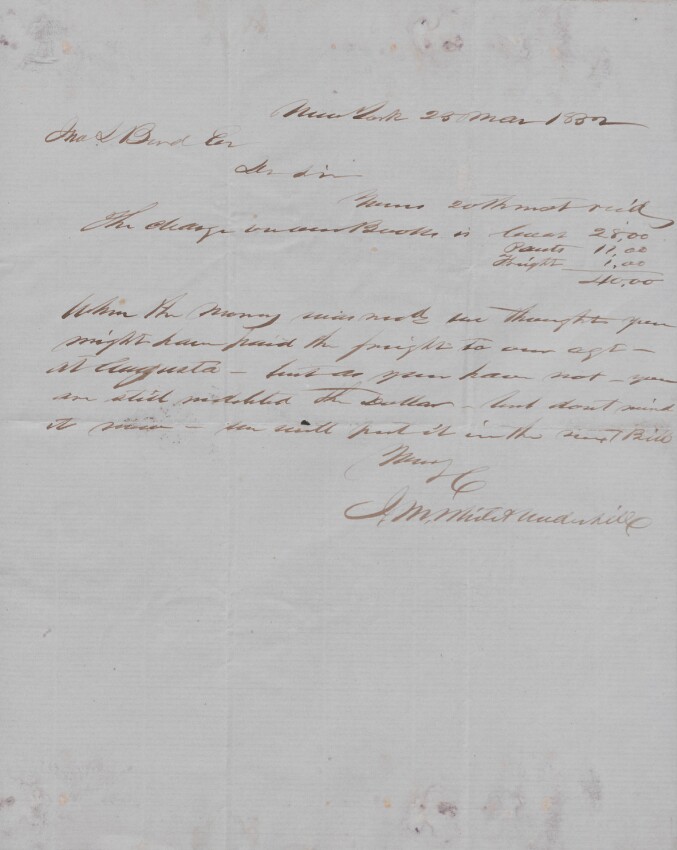 New York 23 Mar 1852
Jno. S Bird Esr
Dr Sir
Yours 20th inst rec'd
The charge on our Books is Coat 28,00
Pants 11,00
Freight 1,00
40,00
When the money was recd we thought you
might have paid the freight to our agt –
at Augusta – but as you have not – you
are still indebted the Dollar – but dont mind
it now – we will put it in the next Bill
Yours
J. M. White & Underhill